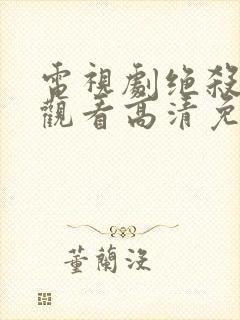 電視劇绝殺
觀看高清免
董蘭沒